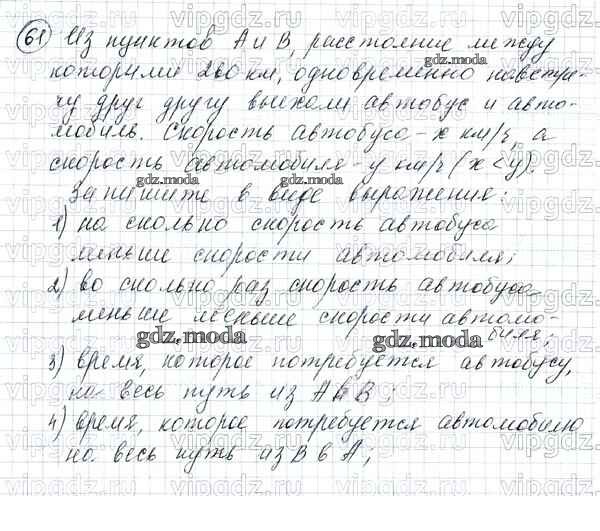 61 Из пунктов А и В, расстояние между
которыми 260 км, одновременно навстре-
чу друг другу выехали автобус и авто-
мобиль. Скорость автобуса - х км/ч, а
скорость автомобиля - у км/ч (х < у).
Запишите в виде выражения:
1) на сколько скорость автобуса
меньше скорости автомобиля;
2) во сколько раз скорость автобуса
меньше меньше скорости автомо-
биля;
3) время, которое потребуется автобусу,
на весь путь из А в В;
4) время, которое потребуется автомобилю
на весь путь из В в А;
gdz.moda
gdz.moda
gdz.moda
gdz.moda
gdz.moda